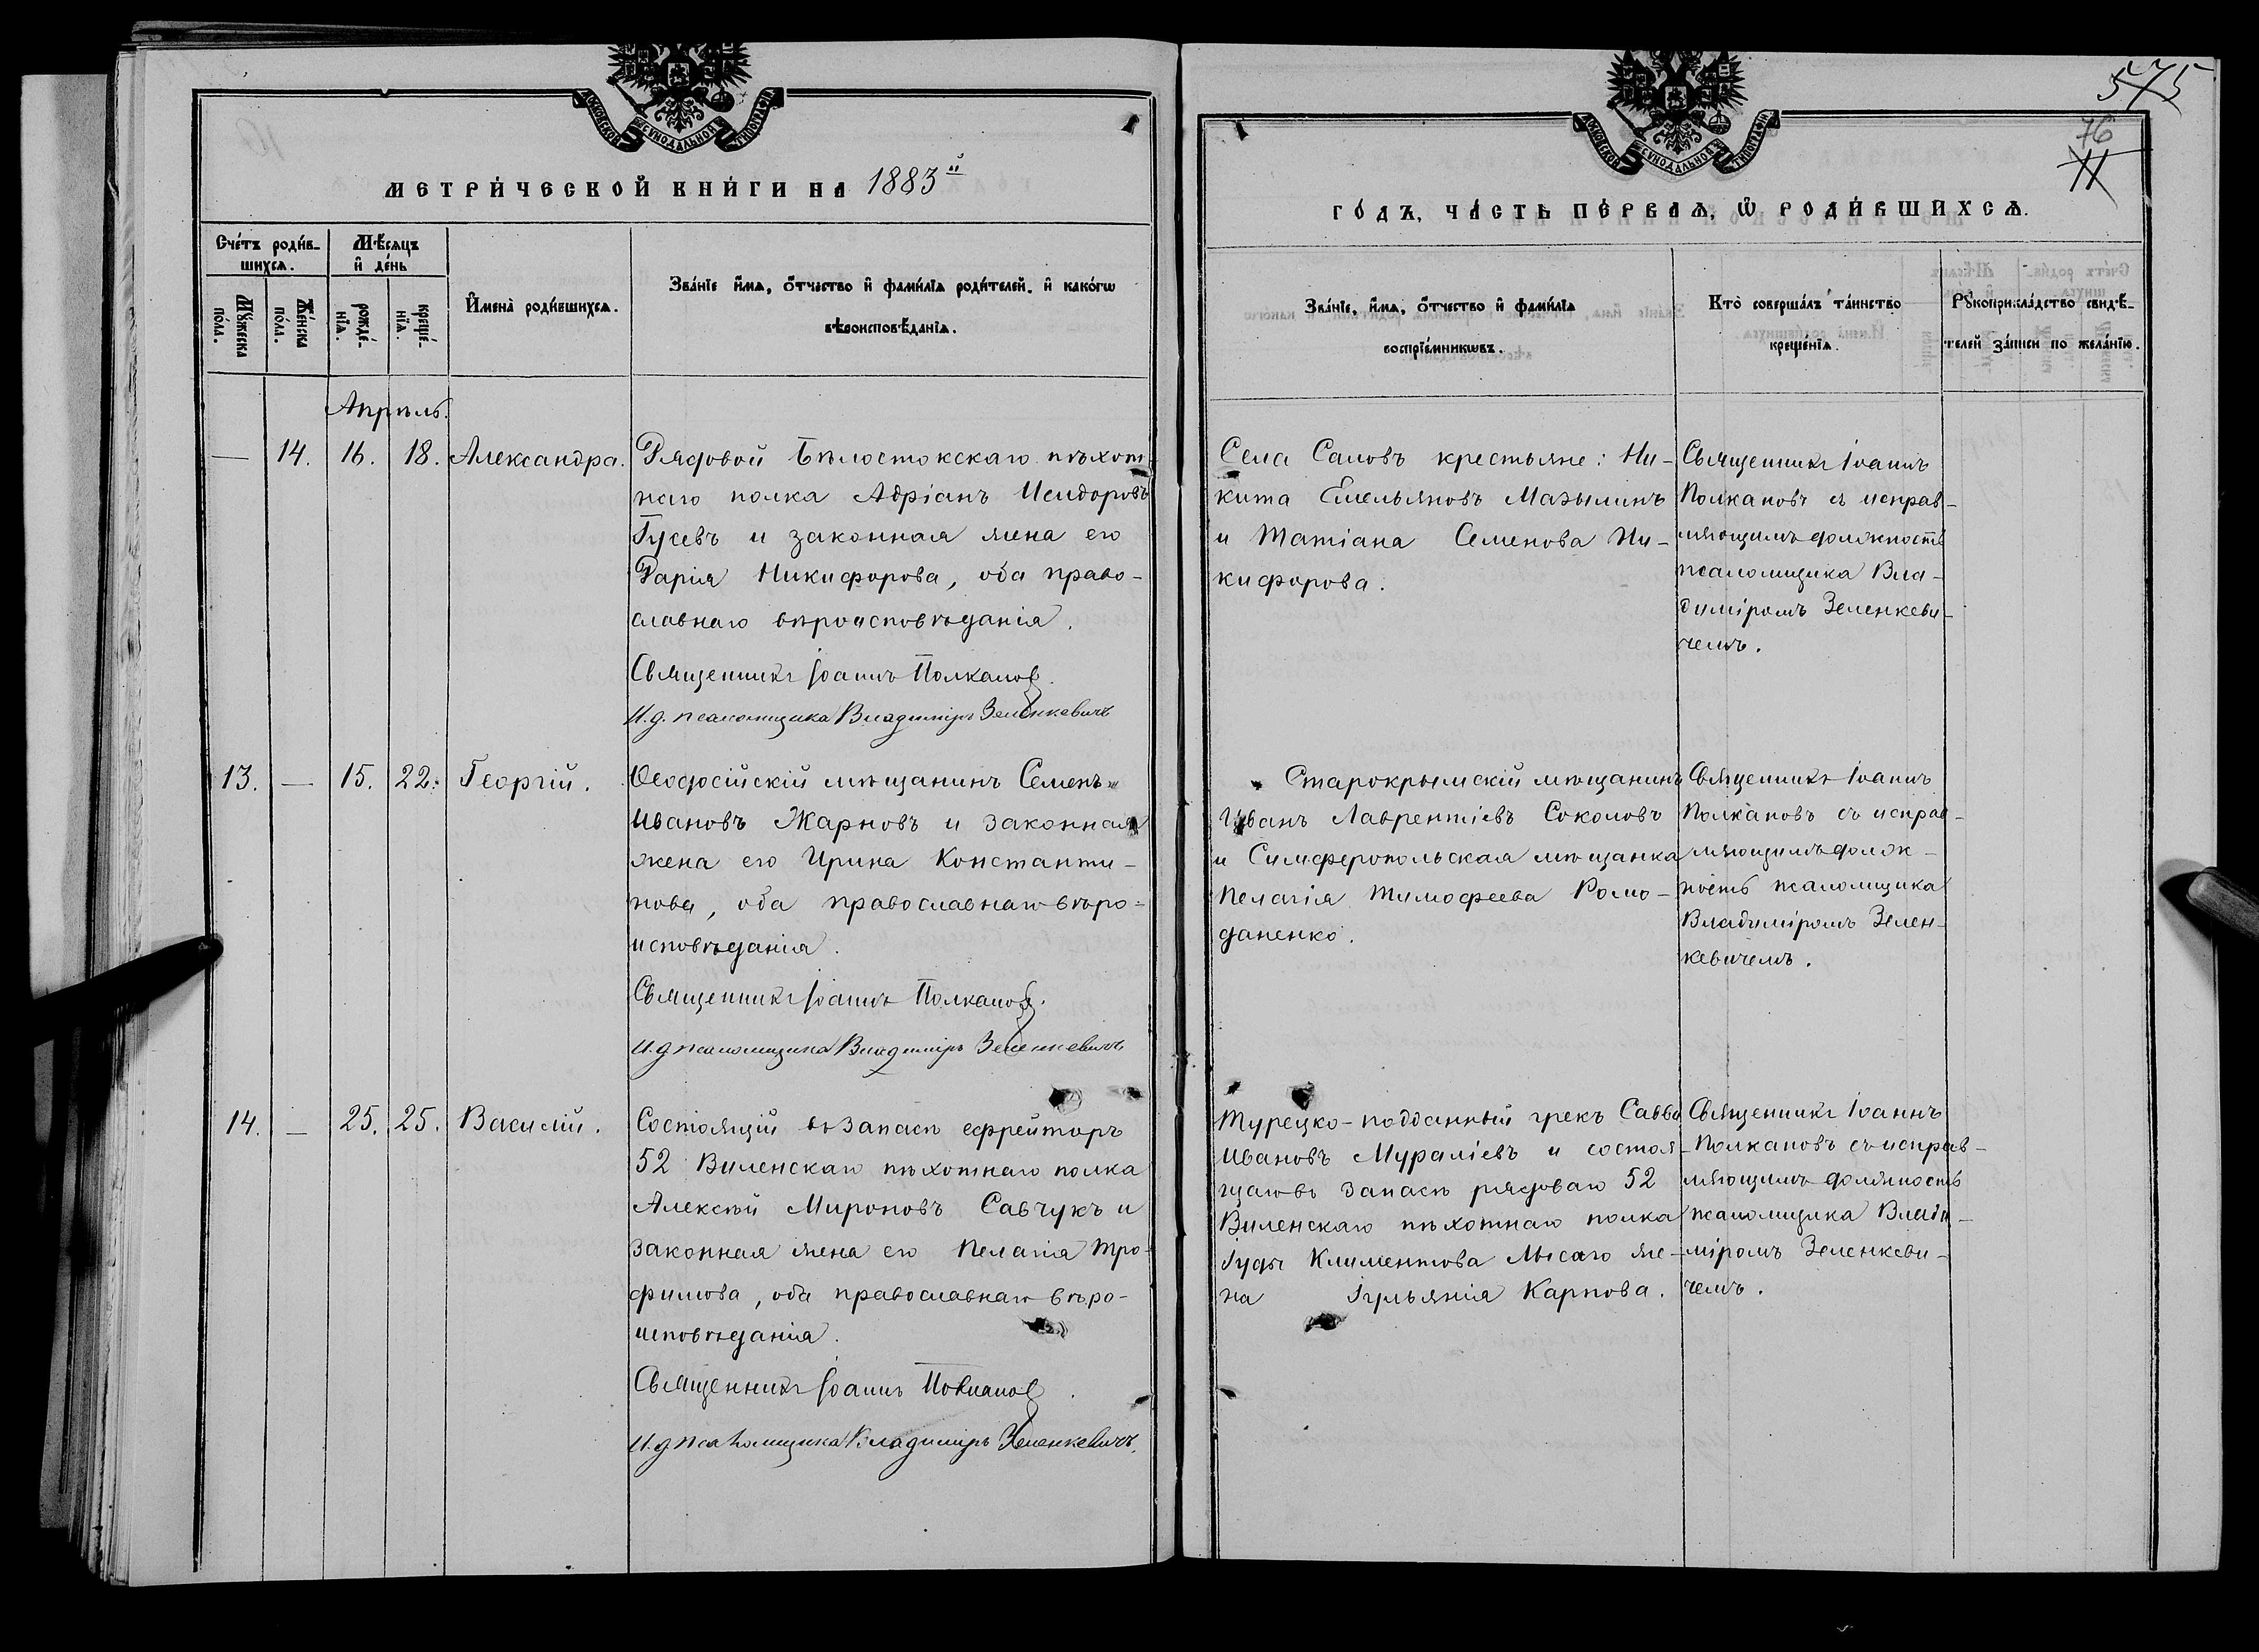 МОСКОВСКОЙ СѴНОДАЛЬНОЙ ТИПОГРАФІИ
МЕТРИ́ЧЕСКОЙ КНИ́ГИ НА 1883й
Сче́тъ роди́в-
шихсѧ.
Мѣ́сѧцъ
и де́нь
Мꙋ́жеска
по́ла.
Же́нска
по́ла.
рожде́-
нїѧ.
креще́-
нїѧ.
И҆мена̀ роди́вшихсѧ.
Зва́нїе и҆́мѧ, ѻ҆́тчество и҆ фами́лїѧ роди́телей, и҆ како́гѡ
вѣроисповѣ́данїѧ.
Апрѣль.
— 14. 16. 18. Александра.
Рядовой Бѣлостокскаго пѣхот-
наго полка Адріанъ Исидоровъ
Гусевъ и законная жена его
Дарія Никифорова, оба право-
славнаго вѣроисповѣданія.
Священникъ Іоаннъ Полкановъ.
И.д. псаломщика Владиміръ Зеленкевичъ
13. — 15. 22. Георгій.
Ѳеодосійскій мѣщанинъ Семенъ
Ивановъ Жарновъ и законная
жена его Ирина Константи-
нова, оба православнаго вѣро-
исповѣданія.
Священникъ Іоаннъ Полкановъ.
И.д псаломщика Владиміръ Зеленкевичъ
14. — 25. 25. Василій.
Состоящій въ запасѣ ефрейторъ
52 Виленскаго пѣхотнаго полка
Алексѣй Мироновъ Савчукъ и
законная жена его Пелагія Тро-
фимова, оба православнаго вѣро-
исповѣданія.
Священникъ Іоаннъ Полкановъ.
И.д псаломщика Владиміръ Зеленкевичъ.
МОСКОВСКОЙ СѴНОДАЛЬНОЙ ТИПОГРАФІИ
575
76
11
ГО́ДЪ, ЧА́СТЬ ПЕ́РВАѦ, Ѽ РОДИ́ВШИХСѦ.
Зва́нїе, и҆́мѧ, ѻ҆́тчество и҆ фами́лїѧ
воспрїе́мникѡвъ.
Кто̀ соверша́лъ та́инство
креще́нїѧ.
Рꙋкоприкла́дство свидѣ́-
телей за́писи по жела́нїю.
Села Саловъ крестьяне: Ни-
кита Емельяновъ Мазылинъ
и Татіана Семенова Ни-
кифорова.
Священникъ Іоаннъ
Полкановъ съ исправ-
ляющимъ должность
псаломщика Вла-
диміромъ Зеленкеви-
чемъ.
Старокрымскій мѣщанинъ
Иванъ Лаврентіевъ Соколовъ
и Симферопольская мѣщанка
Пелагія Тимофеева Ромо-
даненко.
Священникъ Іоаннъ
Полкановъ съ исправ-
ляющимъ долж-
ность псаломщика
Владиміромъ Зелен-
кевичемъ.
Турецко-подданный грекъ Савва
Ивановъ Мураліевъ и состоя-
щаго въ запасѣ рядоваго 52
Виленскаго пѣхотнаго полка
Іуды Климентова Лысаго же-
на Іульянія Карпова.
Священникъ Іоаннъ
Полкановъ съ исправ-
ляющимъ должность
псаломщика Влади-
міромъ Зеленкеви-
чемъ.